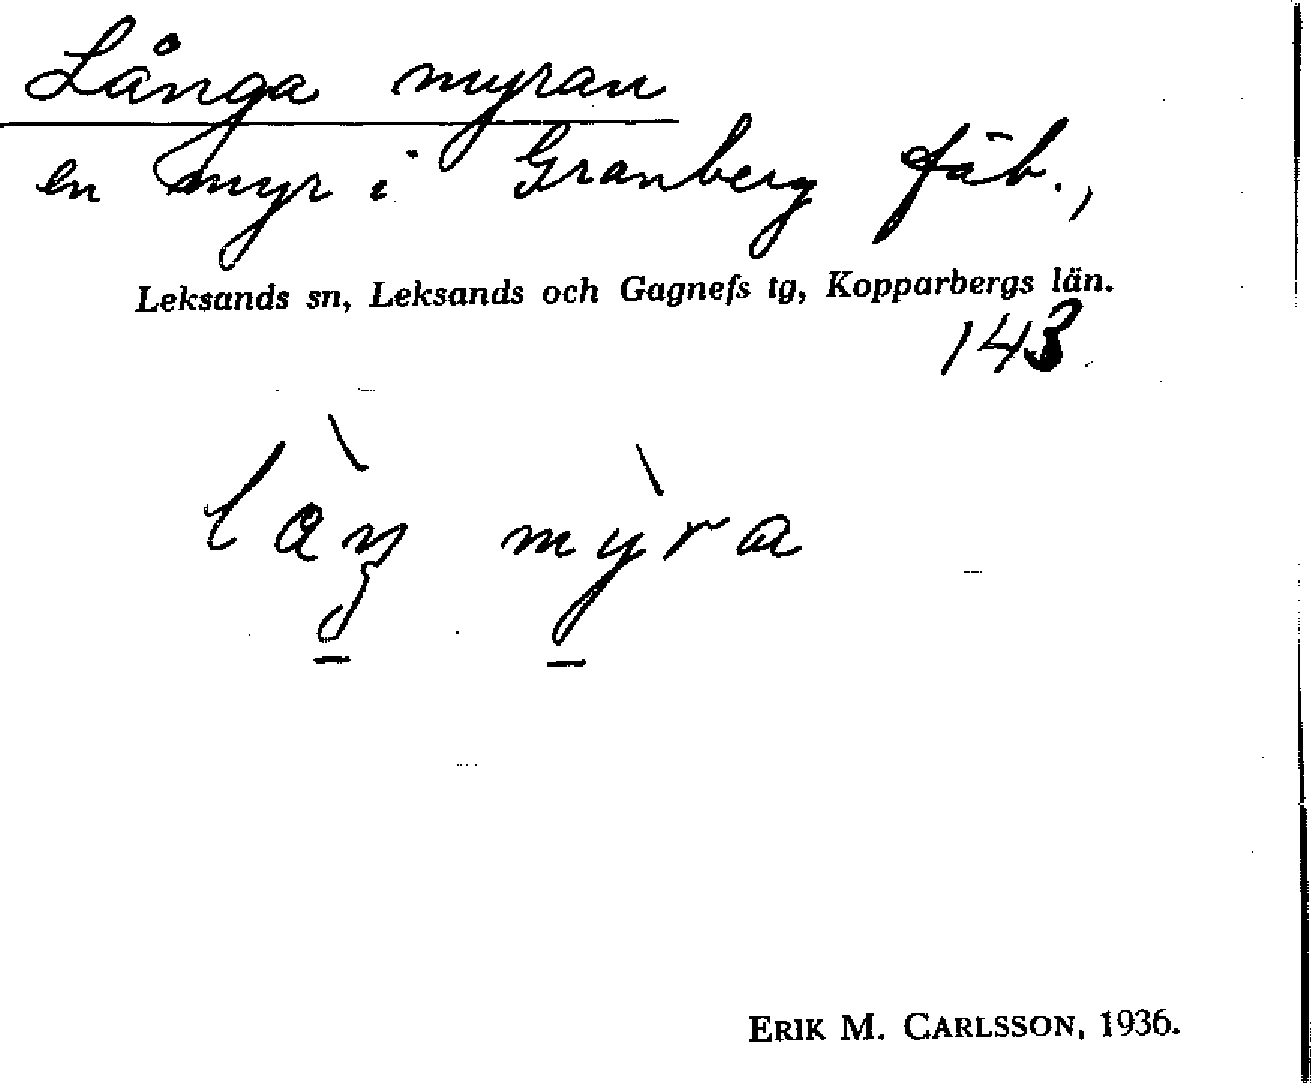 Långa myran
en myr i Granberg fäb.,
Leksands sn, Leksands och Gagnefs tg, Kopparbergs län.
143
myra
ERIK M. CARLSSON, 1936.